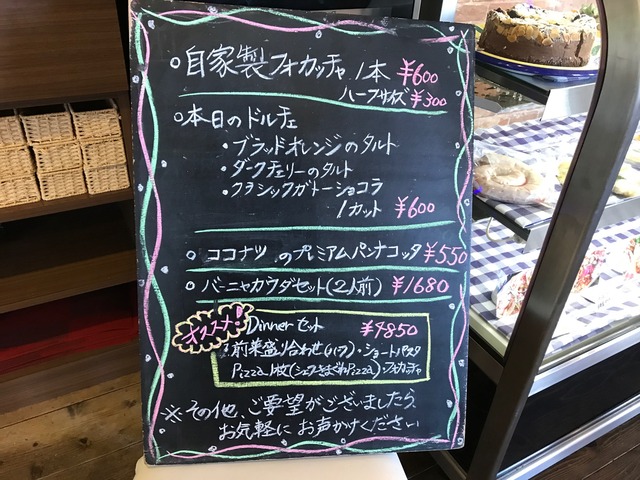 ○自家製フォカッチャ 1本 ¥600
ハーフサイズ ¥300
○本日のドルチェ
・ブラッドオレンジのタルト
・ダークチェリーのタルト
・クラシックガトーショコラ
1カット ¥600
○ココナツ のプレミアムパンナコッタ ¥550
○バーニャカウダセット(2人前) ¥1680
オススメ! Dinnerセット ¥4850
前菜盛り合わせ(ハーフ)・ショートパスタ
Pizza1枚(シェフきまぐれPizza)・フォカッチャ
※その他、ご要望がございましたら、
お気軽にお声かけください